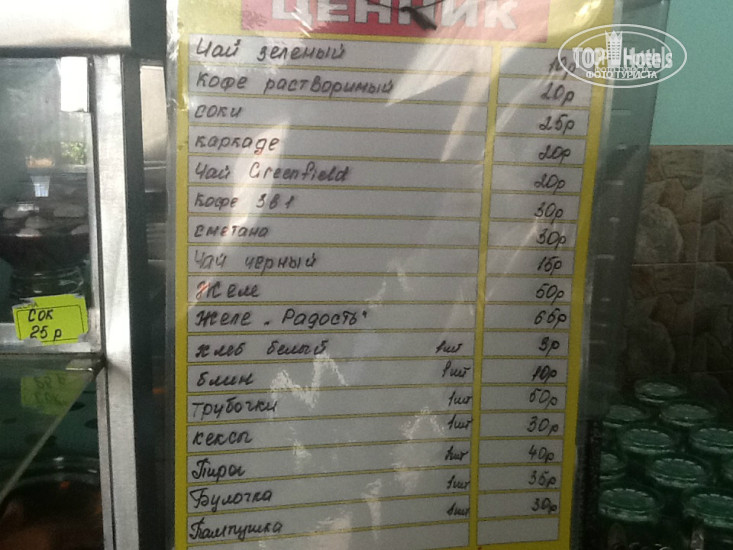 ЦЕННИК
Чай зеленый 10р
кофе растворимый 20р
соки 25р
каркаде 20р
Чай Greenfield 20р
кофе 3в1 30р
сметана 30р
Чай черный 15р
Желе 50р
Желе „Радость" 65р
хлеб белый 1шт 3р
блин 1шт 10р
трубочки 1шт 50р
кексы 1шт 30р
Пиры 1шт 40р
Булочка 1шт 35р
Пампушка 1шт 30р
СОК
25 р
TOP Hotels
ФОТО ТУРИСТА